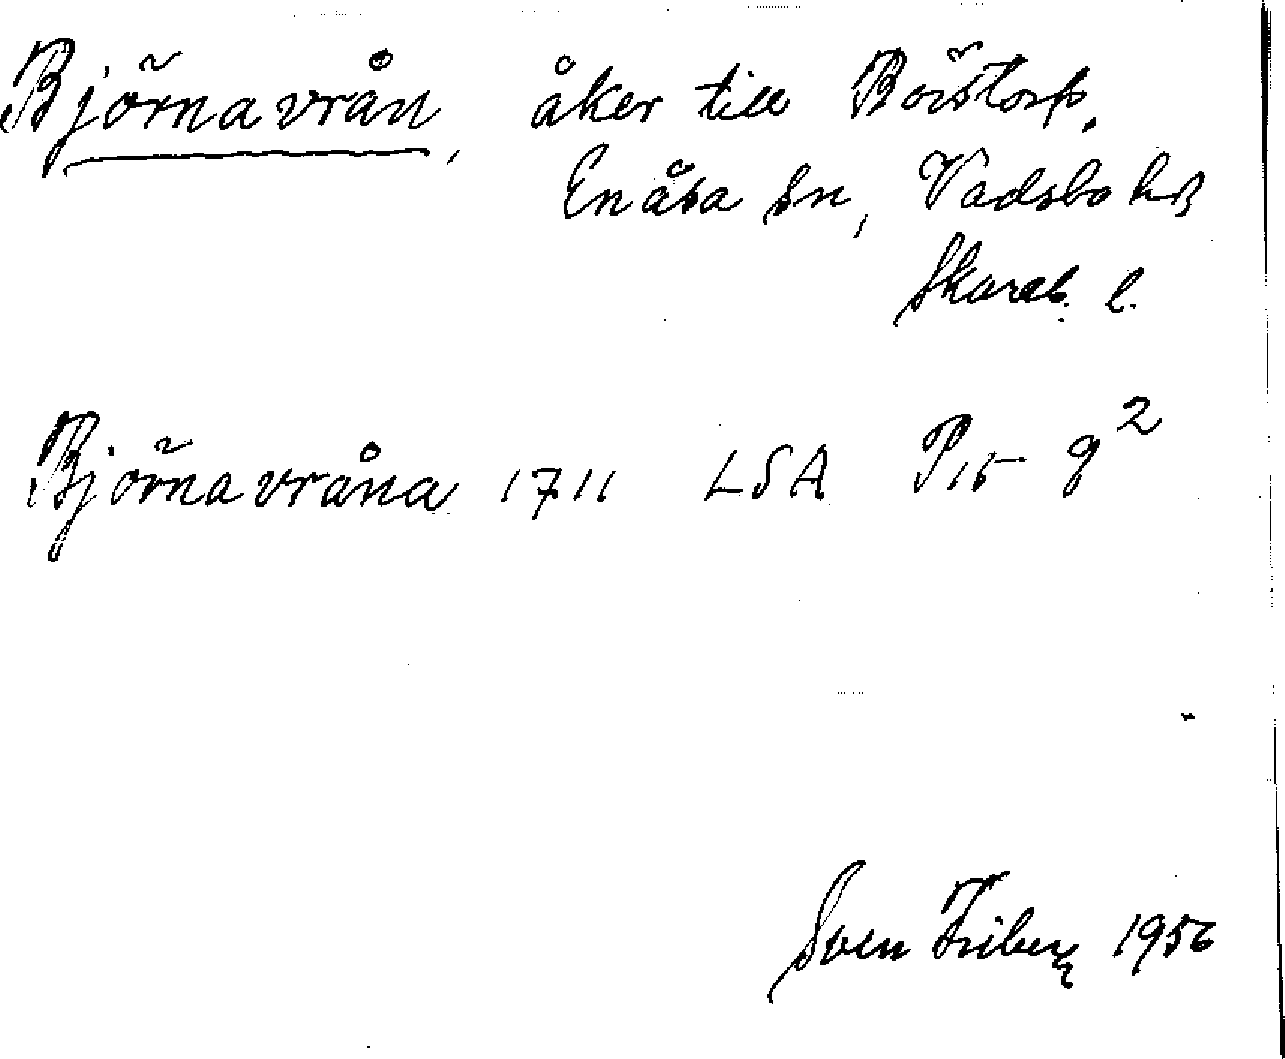 Björnavrån, åker till Böstorp,
Enåsa sn, Vadsbo hd
Skarab. l.
Björnavråna 1711 LSA P15 9²
Sven Friberg 1956